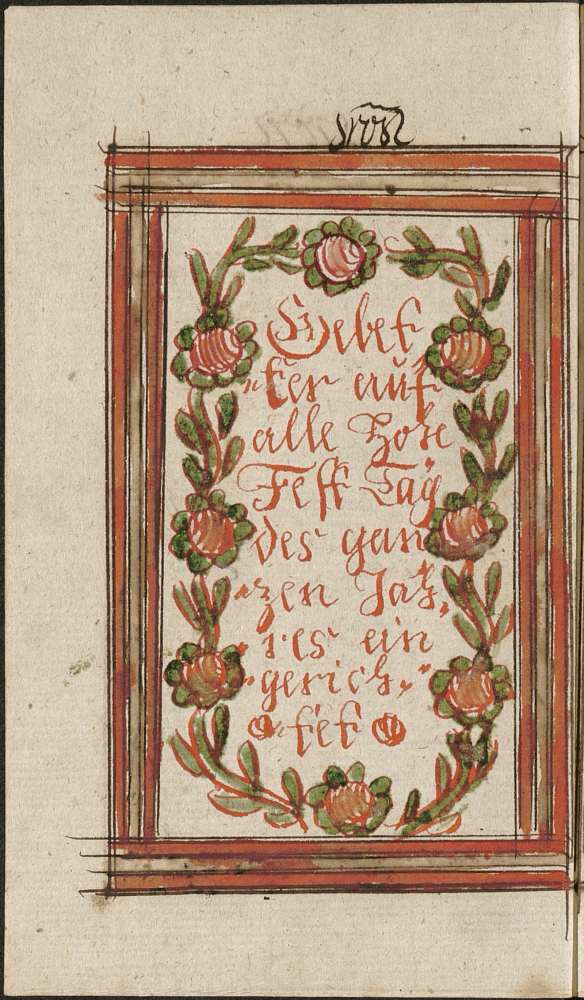 Gebet
ter auf
alle Hohe
Fest Täg
des gan
zen Jah,
res ein
gerich,
tet